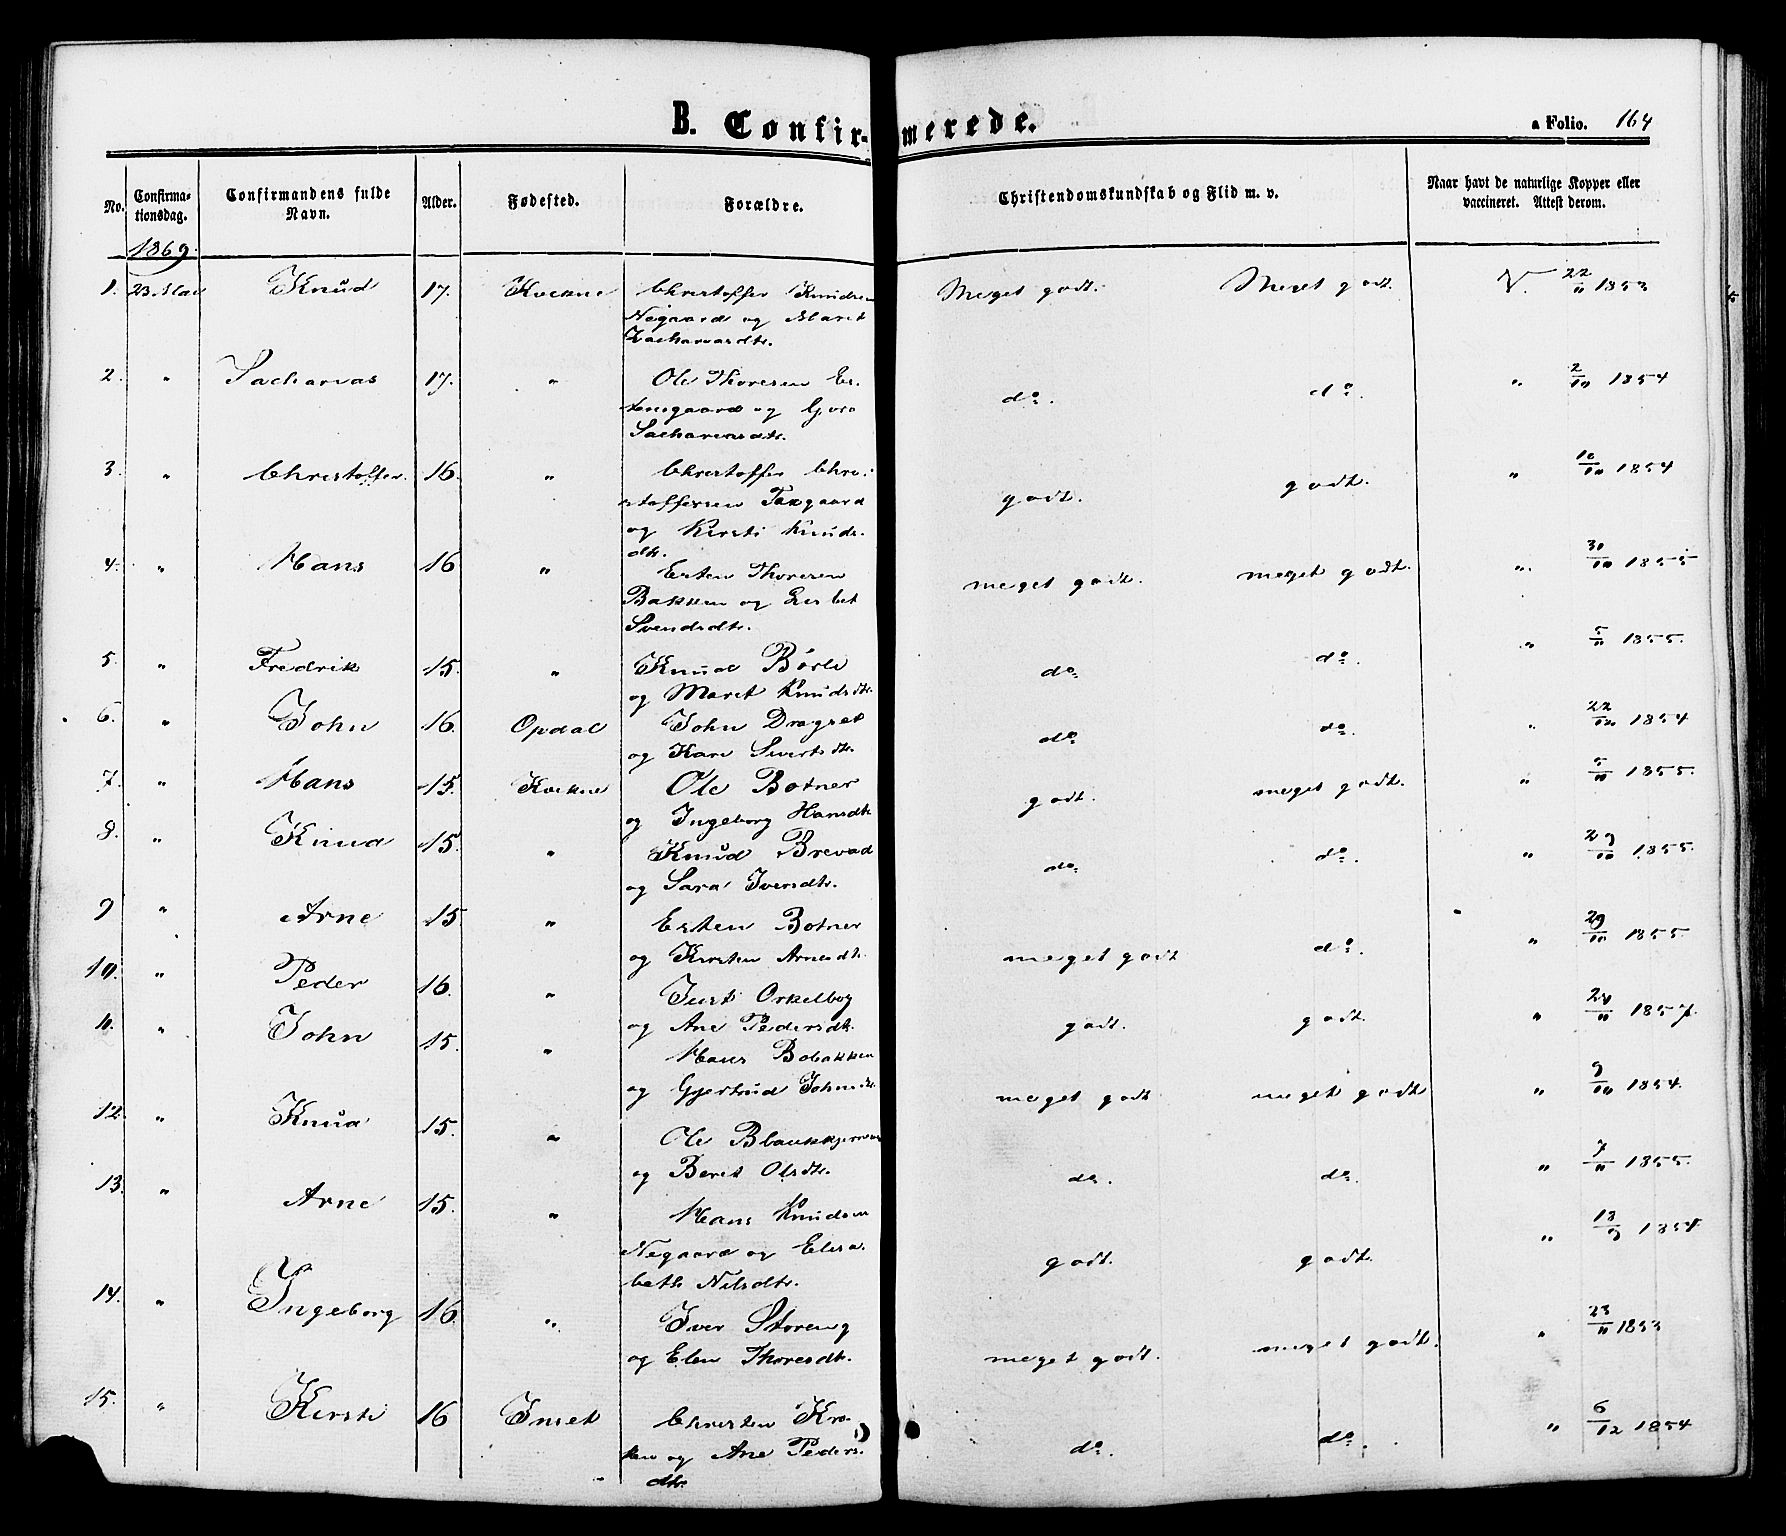 B. Confir- merede.
a Folio. 164
No. Confirma-tionsdag. Confirmandens fulde Navn. Alder. Fødested. Forældre. Christendomskundskab og Flid m. v. Naar havt de naturlige Kopper eller vaccineret. Attest derom.
1869.
1. 23 Mai Knud 17. Kvikne Christoffer Knudsen Meget godt. Meget godt. V. 22/11 1853
Negaard og Marit
Zachariasdtr.
2. " Sacharias 17. " Ole Thoresen Es- do. do. " 2/10 1854
tensgaard og Guro
Sachariasdtr.
3. " Christoffer 16. " Christoffer Chri- godt. godt. " 10/10 1854
stoffersen Taxgaard
og Kirsti Knuds-
dtr.
4. " Hans 16 " Esten Thoresen meget godt. meget godt. " 30/10 1855
Bakken og Lisbet
Svendsdtr.
5. " Fredrik 15. " Knud Børli do. do. " 5/11 1855.
og Marit Knudsdtr.
6. " John 16. Opdal John Dragset do. do. " 22/12 1854
og Kari Sivertsdtr.
7. " Hans 15. Kvikne Ole Botner godt. meget godt. " 5/11 1855.
og Ingeborg Hansdtr.
8. " Knud 15. " Knud Brevad do. do. " 29/10 1855.
og Sara Iversdtr.
9 " Arne 15 " Esten Botner meget godt do. " 29/10 1855.
og Kirsten Arnesdtr.
10. " Peder 16. " Just Orkelbog godt. godt. " 24/11 1857.
og Ane Pedersdtr.
11. " John 15. " Hans Bobakken meget godt meget godt " 9/10 1854.
og Gjertrud Johnsdtr.
12. " Knud 15. " Ole Blaukkjernmo do. do. " 7/11 1855.
og Berit Olsdtr.
13. " Arne 15. " Hans Knudsen godt. godt. " 13/9 1854.
Negaard og Elisa-
beth Nilsdtr.
14. " Ingeborg 16. " Iver Storeng meget godt. meget godt. " 23/11 1853
og Elen Thoresdtr.
15. " Kirsti 16 Inset Christen Kro- do. do. " 6/12 1854
ken og Ane Peders-
dtr.